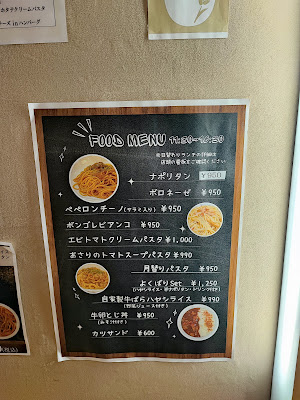 ホタテクリームパスタ
ーズ in ハンバーグ
FOOD MENU 11:30~14:30
※日替わりランチの詳細は
店頭の看板をご確認ください
ナポリタン ¥950
ボロネーゼ ¥950
ペペロンチーノ(サラミ入り) ¥950
ボンゴレビアンコ ¥950
エビトマトクリームパスタ ¥1,000
あさりのトマトスープパスタ ¥990
月替りパスタ ¥950
よくばりSet ¥1,250
自家製牛ばらハヤシライス ¥990
牛卵とじ丼 ¥950
カツサンド ¥600